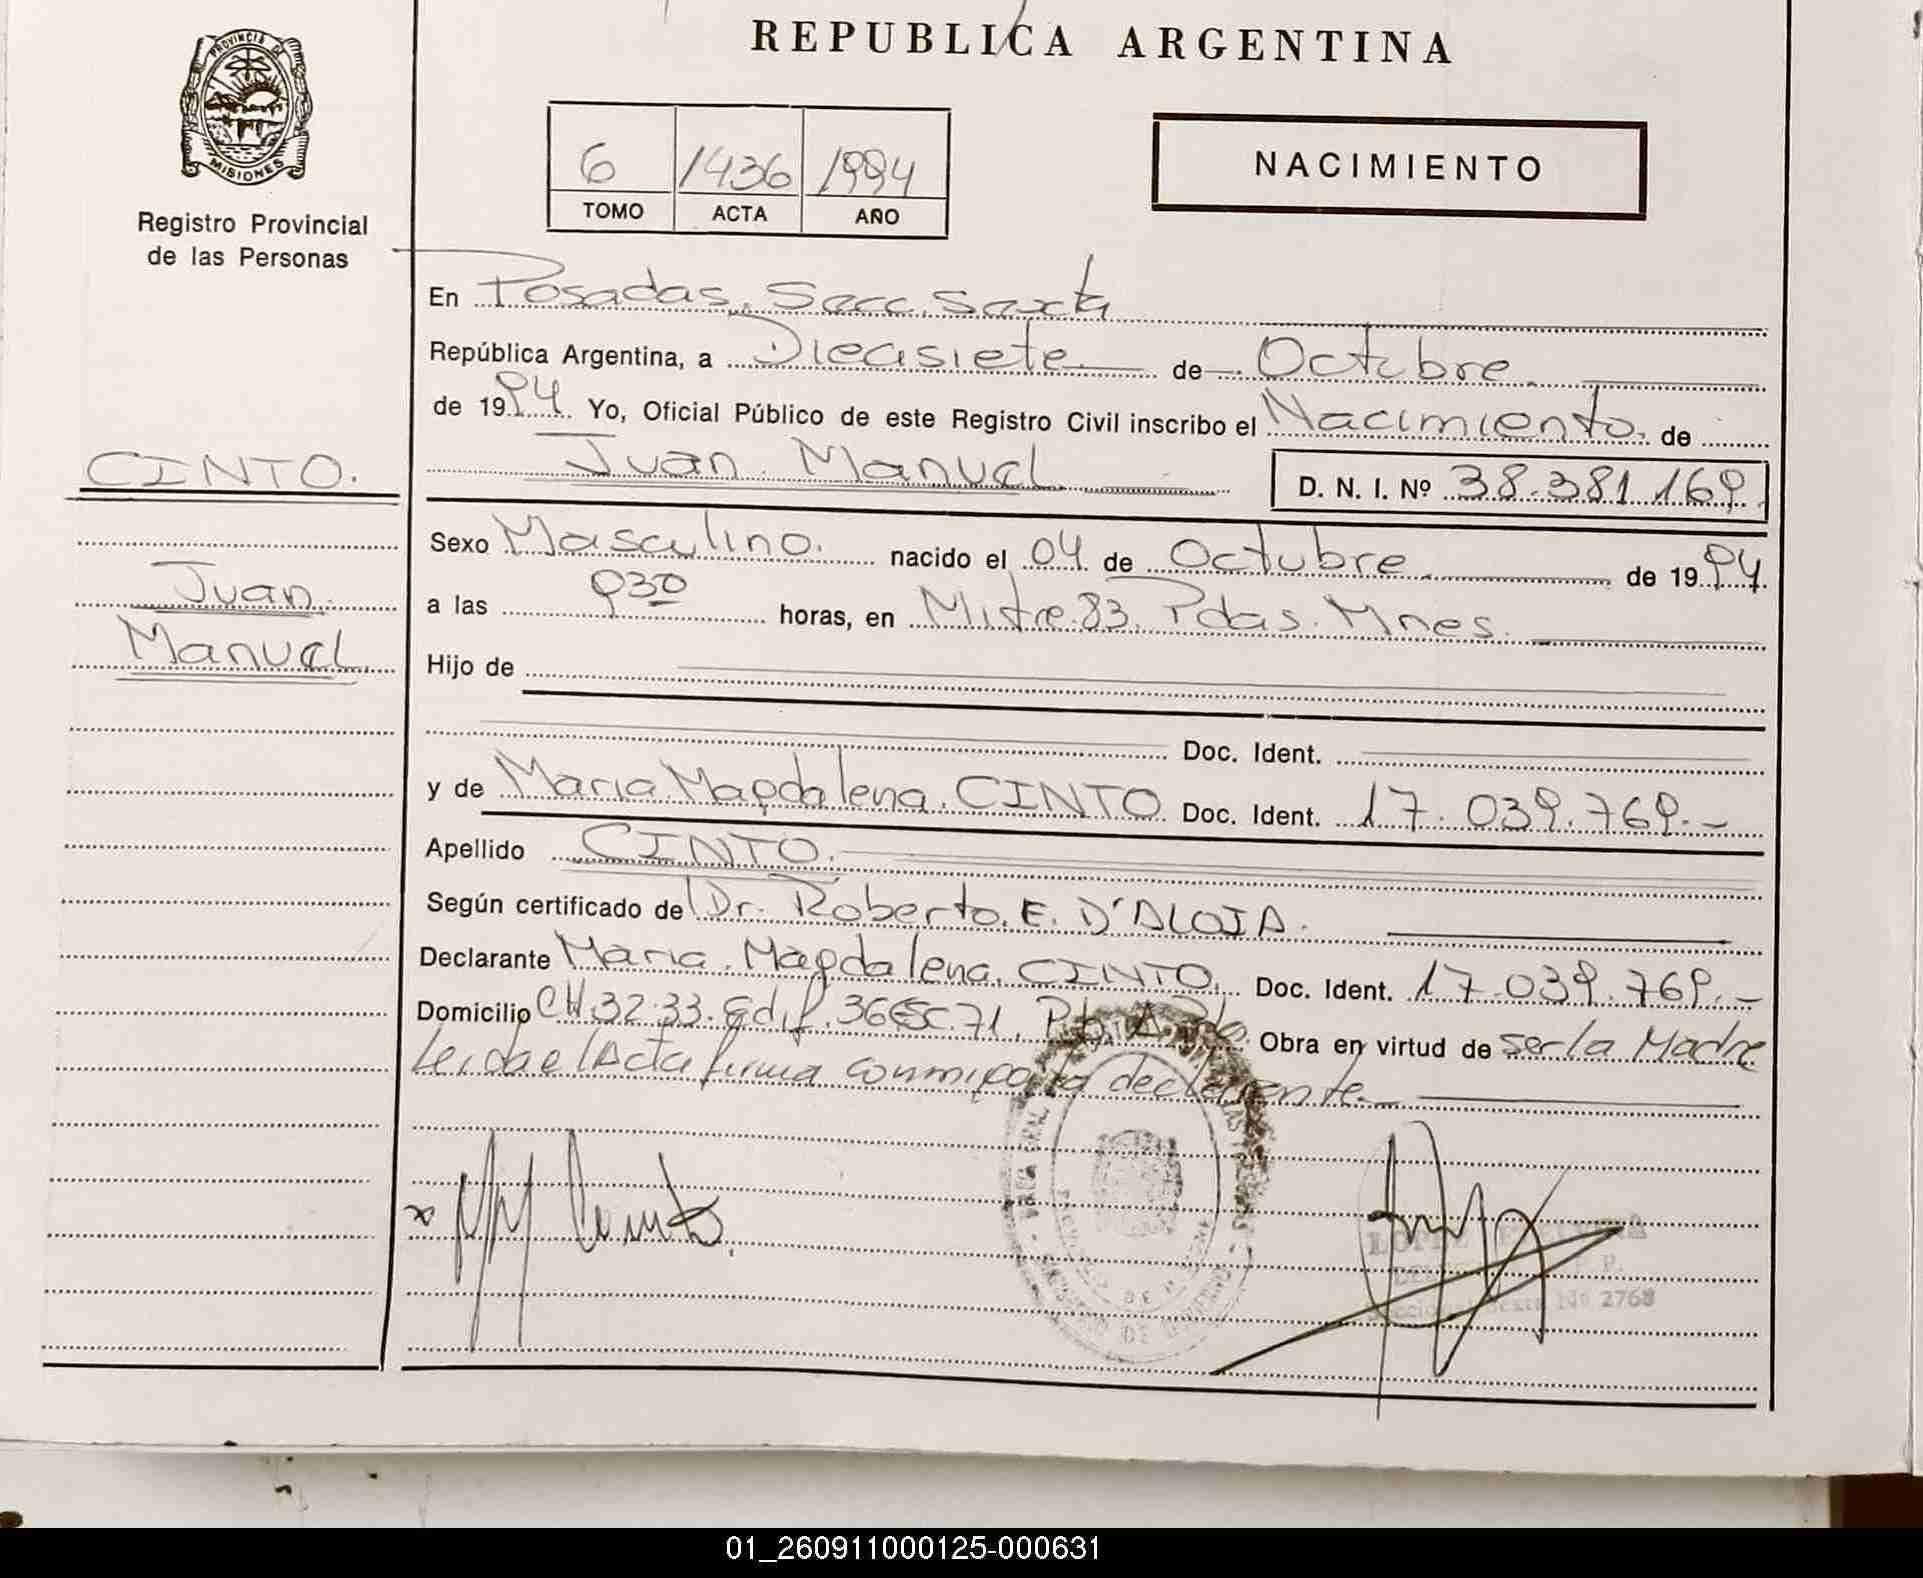 REPUBLICA ARGENTINA
PROVINCIA DE
MISIONES
Registro Provincial
de las Personas
6 1436 1994
TOMO ACTA AÑO
NACIMIENTO
En Posadas, Secc. Sexta
República Argentina, a Diecisiete de Octubre
de 1994 Yo, Oficial Público de este Registro Civil inscribo el Nacimiento. de
CINTO.
Juan Manuel D. N. I. Nº 38.381.169
Sexo Masculino. nacido el 04 de Octubre de 1994.
Juan
Manuel
a las 930 horas, en Mitre 83. Pdas. Mnes.
Hijo de
Doc. Ident.
y de Maria Magdalena CINTO Doc. Ident. 17.039.769.-
Apellido CINTO.
Según certificado de Dr. Roberto E. D'ALOIA.
Declarante Maria Magdalena CINTO. Doc. Ident. 17.039.769.-
Domicilio CH.32-33. Edif. 36 Esc. 71, Obra en virtud de ser la Madre
Leida el Acta firma conmigo la declarante.
Cinto
LOPEZ
Nº 2768
01_260911000125-000631